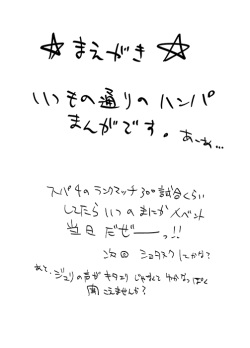 ☆ まえがき ☆
いつもの通りのハンパ
まんがです。あーね...
スパ4のランクマッチ300試合くらい
してたらいつのまにかイベント
当日だぜーっ!!
次回 ショタスクにかな?
あと、ジュリの声がキタエリじゃなくてゆかなっぽく
聞こえませんか?